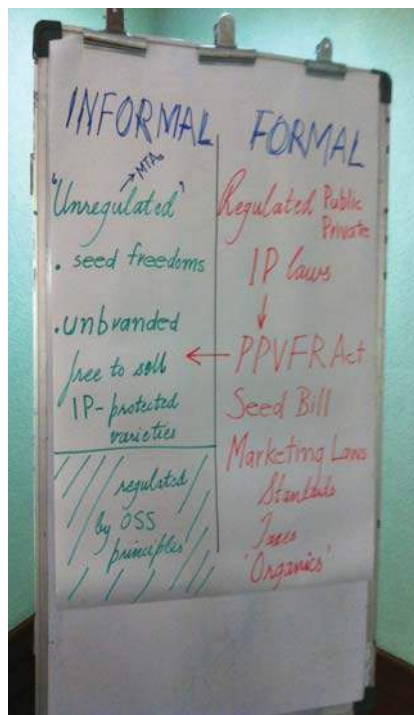 INFORMAL
→ MTAs
"Unregulated"
. seed freedoms
. unbranded
free to sell
IP-protected
varieties
regulated
by OSS
principles
FORMAL
Regulated Public
Private
IP laws
↓
← PPVFRAct
Seed Bill
Marketing Laws
Standards
Taxes
'Organics'